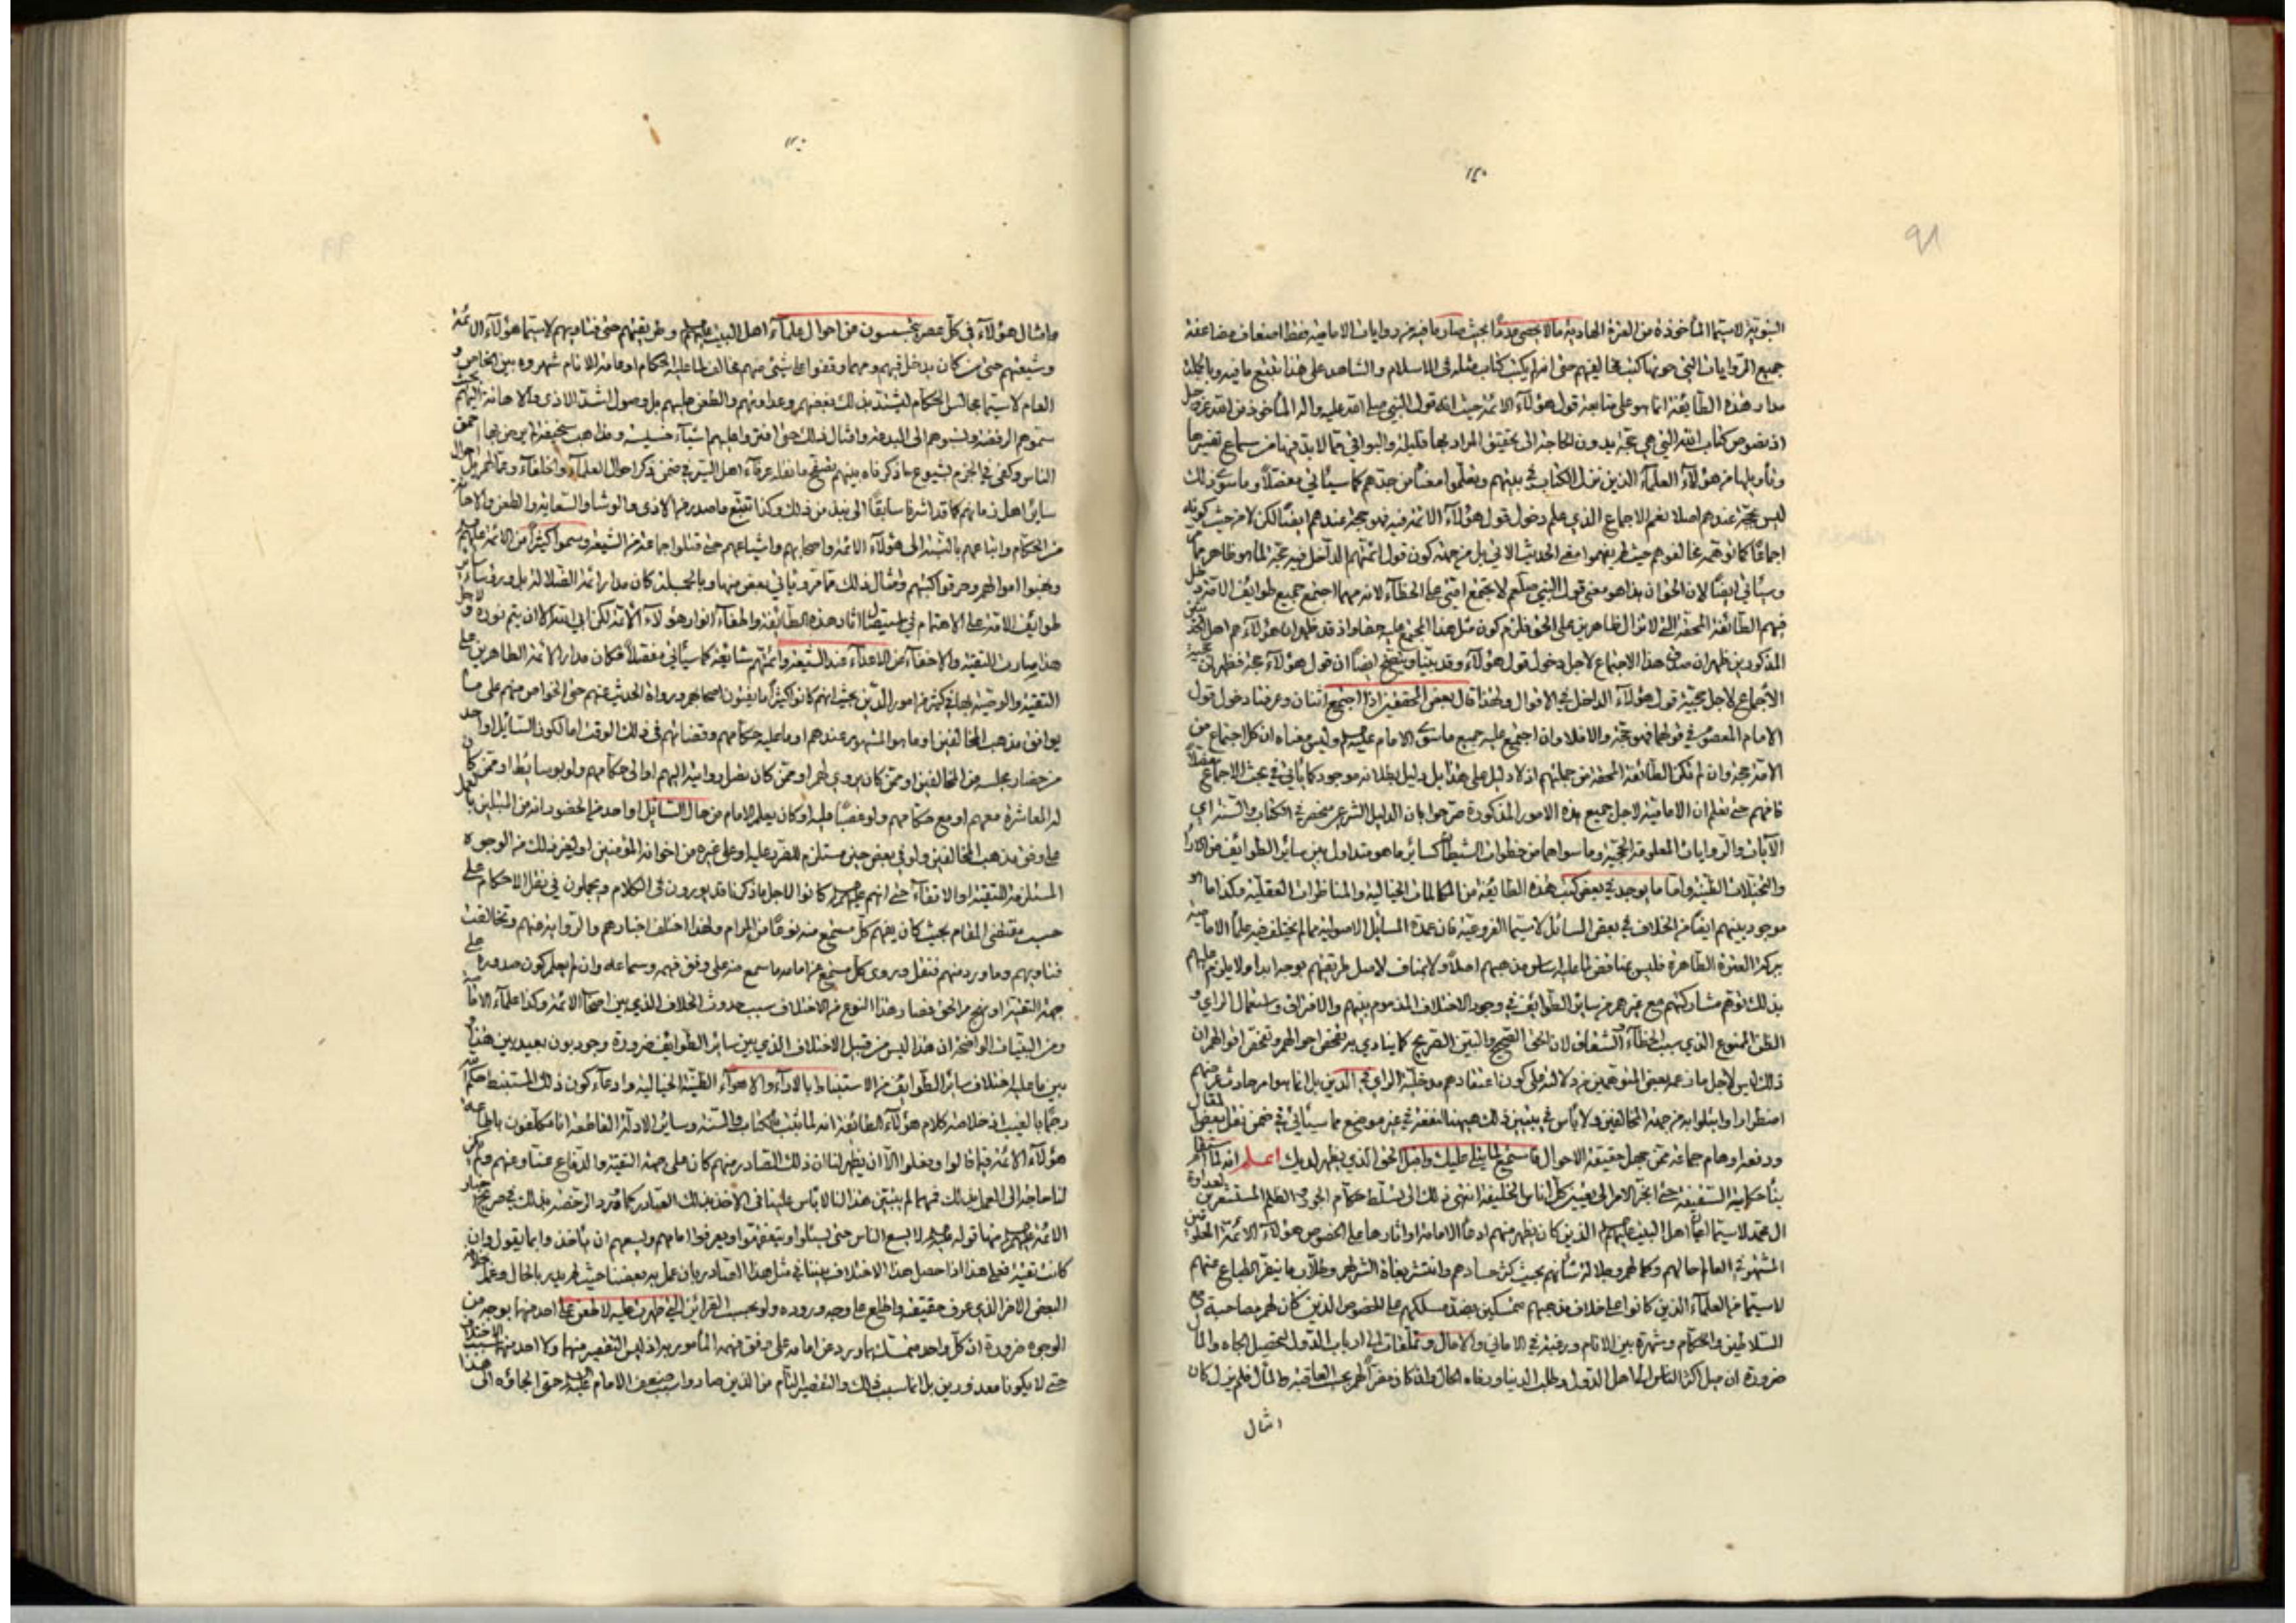 النبوية لاسيما المأخوذة من العترة الهادية مالا يحصى مدّها بحيث صار ما فيه من روايات الامامية فقط اضعاف مضاعفة
جميع الروايات التي حوتها كتب مخالفيهم حتى انه لم يكتب كتاب مثله في الاسلام والشاهد على هذا تتبع ما فيه وبالجملة
مدار هذه الطائفة انما هو على متابعة قول هؤلاء الائمة حيث انه قول النبي صلى الله عليه واله المأخوذ من الله عز وجل
اذ نصوص كتاب الله التي هي حجة بدون الحاجة الى تحقيق المراد بها قليلة والبواقي مما لا بد فيها من سماع تفسيرها
وتأويلها من هؤلاء العلماء الذين نزل الكتاب في بيتهم وتعلموا معناه من جدهم كما سيأتي مفصلاً وما سوى ذلك
ليس بحجة عندهم اصلا نعم الاجماع الذي علم دخول قول هؤلاء الائمة فيه فهو حجة عندهم ايضاً لكن لا من حيث كونه
اجماعاً كما توهمه مخالفوهم حيث لم يفهموا معنى الحديث الاتي بل من جهة كون قول ائمتهم الداخل فيه حجة لما هو ظاهر مما
وسيأتي ايضاً لان الحق ان هذا هو معنى قول النبي صلعم لا يجتمع امتي على الخطاء لانه مهما اجتمع جميع طوائف الامة دخل
فيهم الطائفة المحقة التي لا تزال ظاهرين على الحق فلزم كون مثل هذا المجمع عليه حقا واذ قد ظهر ان هؤلاء هم اهل الحق
المذكورين ظهر ان صدق هذا الاجتماع لاجل دخول قول هؤلاء وقد بينا وسيتضح ايضاً ان قول هؤلاء حجة فظهر ان حجية
الاجماع لاجل حجية قول هؤلاء الداخل في الاقوال ولهذا قال بعض المحققين اذا اجتمع اثنان وعرفنا دخول قول
الامام المعصوم في قولهما فهو حجة والا فلا وان اجتمع عليه جميع ما سوى الامام عليه السلام وليس معناه ان كل اجتماع من
الامة حجة وان لم تكن الطائفة المحقة من جملتهم اذ لا دليل على هذا بل دليل بطلانه موجود كما يأتي في بحث الاجماع مفصلا
فافهم حتى تعلم ان الامامية لاجل جميع هذه الامور المذكورة صرحوا بان الدليل الشرعي منحصر في الكتاب والسنة اي
الآيات والروايات المعلومة الحجية وما سواهما من خطوات الشيطان كسائر ما هو متداول بين سائر الطوائف من الآراء
والتخيلات الظنية واما ما يوجد في بعض كتب هذه الطائفة من المكالمات الخيالية والمناظرات العقلية وكذا ما هو
موجود بينهم ايضا من الخلاف في بعض المسائل لاسيما الفروعية فان عمدة المسائل الاصولية مما لم يختلف فيه علماء الامامية
ببركة العترة الطاهرة فليس بمناقض لما عليه اساس مذهبهم اصلاً ولا بمناف لاصل طريقتهم بوجه ابدا ولا يلزم عليهم
بذلك توهم مشاركتهم مع غيرهم من سائر الطوائف في وجود الاختلاف المذموم بينهم والافتراق واستعمال الراي و
الظن الممنوع الذي سبب الخطاء والشقاق لان الحق الصحيح والبين الصريح كما ينادي به تفحص احوالهم وتفحص اقوالهم ان
ذلك ليس لاجل ما زعمه بعض المتوهمين من دلالته على كون اعتقادهم مدخلية الراي في الدين بل انما هو امر حادث عرضهم
اضطرارا وابتلوا به من جهة المخالفين ولا بأس في تبيين ذلك هيهنا لنفعه في غير موضع مما سيأتي في ضمن نقل بعض المقال
ودفعا اوهام جماعة ممن جهل حقيقة الاحوال فاستمع لما يتلى عليك واقبل الحق الذي يظهر لديك اعلم انه لما استقر
بناء حكاية السقيفة حتى انجر الامر الى تعيين كل اناس الخليفة انتهى ذلك الى تسلط حكام الجور والظلم المستشعرين لعداوة
ال محمد لاسيما علماء اهل البيت عليهم السلام الذين كان يظهر منهم ادعاء الامامة او اثارها على الخصوص هؤلاء الائمة
المشهورة في العالم حالهم وكمالهم وجلالة شأنهم بحيث كثر حسادهم وانتشر بغاة الشر لهم وطلاب ما ينفر الطباع عنهم
لاسيما من العلماء الذين كانوا على خلاف مذهبهم متمسكين بضد مسلكهم على الخصوص الذين كان لهم مصاحبة مع
السلاطين والحكام وشهرة بين الانام ورغبة في الاماني والامال وتملقات الى ارباب الدول لتحصيل الجاه والمال
ضرورة ان ميل اكثر الناس الى اهل الدول وطلب الدنيا ورفاه الحال واذ كان مغرا لهم بحب العاقبة والمال فلم يزل كان
امثال
وامثال هؤلاء في كل عصر يتجسسون من احوال علماء اهل البيت عليهم السلام وطريقتهم حتى فتاويهم لاسيما هؤلاء الائمة
وشيعتهم حتى من كان يدخل فيهم ومهما وقفوا على شيئ منهم مخالف لما عليه الحكام او عامة الانام شهروه بين الخاص و
العام لاسيما مجالس الحكام ليشتد بذلك بغضهم وعداوتهم والطعن عليهم بل وصول اشد الاذى والاهانة اليهم بحيث
سموهم الرفضة ونسبوهم الى البدعة وامثال ذلك حتى افتروا عليهم اشياء خسيسة ومذاهب سخيفة
الناس وكفى في الجزم بشيوع ما ذكرناه بينهم تصفح ما نقله عرفاء اهل السير في ضمن ذكر احوال العلماء والخلفاء وعمالهم بل احوال
سائر اهل زمانهم كما قد اشرنا سابقاً الى نبذ من ذلك وكذا تتبع ما صدر من الاذى والوشاء والسعاية والطعن والاهانة
من الحكام واتباعهم بالنسبة الى هؤلاء الائمة واصحابهم واشياعهم حتى قتلوا جماعة من الشيعة وسموا كثيراً من الائمة عليهم
ونهبوا اموالهم وحرقوا كتبهم وامثال ذلك مما مر ويأتي بعض منها وبالجملة كان مدار ائمة الضلالة بل ورؤساء
طوائف الامة على الاهتمام في استيصال اثار هذه الطائفة واطفاء انوار هؤلاء الائمة لكن ابى الله الا ان يتم نوره ولاجل
هذا صارت التقية والاخفاء من الاعداء عند الشيعة وائمتهم شائعة كما سيأتي مفصلاً فكان مدار الائمة الطاهرين على
التقية والوصية بها في كثير من امور الدين بحيث انهم كانوا كثيراً ما يفتون اصحابهم ورواة الحديث عنهم حتى الخواص منهم على ما
يوافق مذهب المخالفين او ما هو المشهور عندهم او ما عليه حكامهم وقضاتهم في ذلك الوقت اما لكون السائل او احد
من حضار مجلسه من المخالفين او ممن كان يروي لهم او ممن كان يصل روايته اليهم او الى حكامهم ولو بوسائط او ممن كان
له المعاشرة معهم او مع حكامهم ولو غصباً عليه او كان يعلم الامام من حال السائل او احد من الحضور انه من المبتلين بالعمل
على وفق مذهب المخالفين ولو في بعض حين مستلزم للضرر عليه او على غيره من اخوانه المؤمنين او لغير ذلك من الوجوه
المستلزمة للتقية او الاتقاء حتى انهم عليهم السلام كانوا لاجل ما ذكرنا قد يورون في الكلام ويجملون في نقل الاحكام على
حسب مقتضى المقام بحيث كان يفهم كل مستمع منه نوعاً من المرام ولهذا اختلف اخبارهم والرواية عنهم وتخالفت
فتاويهم وما ورد منهم فنقل وروى كل مستمع عن امامه ما سمع منه على وفق فهمه وسماعه وان لم يعلم كون صدوره على
جهة التقية او نهج من الحق فصار هذا النوع من الاختلاف سبب حدوث الخلاف الذي بين اصحاب الائمة وكذا علماء الامامية
ومن البينات الواضحة ان هذا ليس من قبيل الاختلاف الذي بين سائر الطوائف ضرورة وجود بون بعيد بين هذا و
بين ما عليه اختلاف سائر الطوائف من الاستنباط بالاراء والاهواء الظنية الخيالية وادعاء كون ذلك المستنبط حكم الله
رجماً بالغيب اذ خلاصة كلام هؤلاء الطائفة انه لما ثبت بالكتاب والسنة وسائر الادلة القاطعة انا مكلفون باطاعة
هؤلاء الائمة فيما قالوا وفعلوا الا ان يظهر لنا ان ذلك الصادر منهم كان على جهة التقية والدفاع عنا وعنهم ولم يكن
لنا حاجة الى العمل بذلك فمهما لم يتبين هذا لنا لا بأس علينا في الاخذ بذلك الصادر كما ورد الرخصة بذلك في صريح اخبار
الائمة عليهم السلام منها قوله عليه السلام لا يسع الناس حتى يسئلوا او يتفقهوا ويعرفوا امامهم ويسعهم ان يأخذوا بما يقول وان
كانت تقية فعلى هذا اذا حصل هذا الاختلاف بيننا في مثل هذا الصادر بان عمل به بعضنا حيث لم يدر بالحال وعمل بخلافه
البعض الاخر الذي عرف حقيقته واطلع على وجه وروده ولو بحسب القرائن التي ظهرت عليه لا طعن على احد منهما بوجه من
الوجوه ضرورة ان كل واحد متمسك بما ورد عن امامه على وفق فهمه المأمور به اذ ليس التقصير منهما ولا احد منهما سبب الاختلاف
حتى لا يكونا معذورين بل انما سبب ذلك والتقصير التام من الذين صاروا سبب ضعف الامام عليه السلام حتى الجاؤه الى هذا